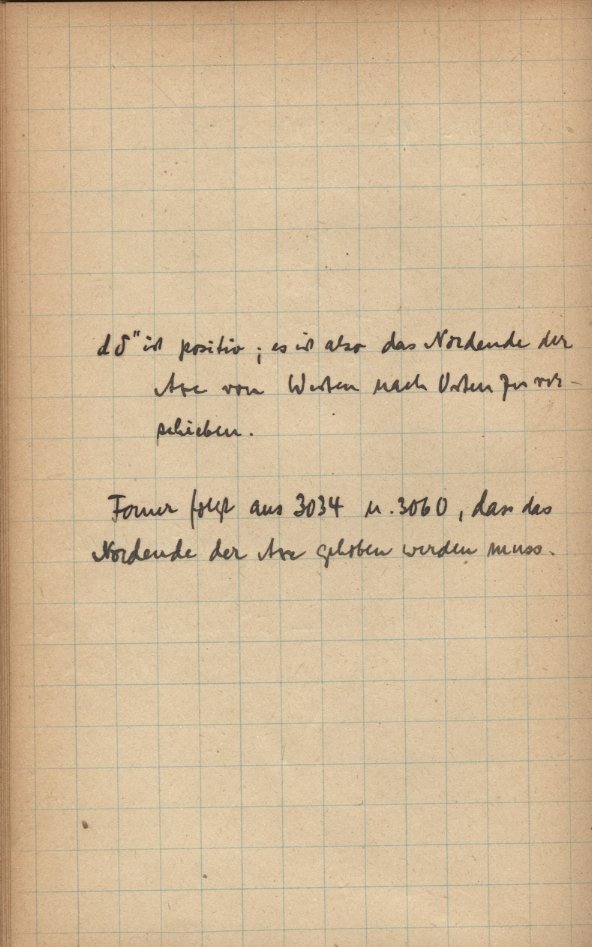 dδ" ist positiv; es ist also das Nordende der
Axe von Westen nach Osten zu ver-
schieben.
Ferner folgt aus 3034 u. 3060, dass das
Nordende der Axe gehoben werden muss.